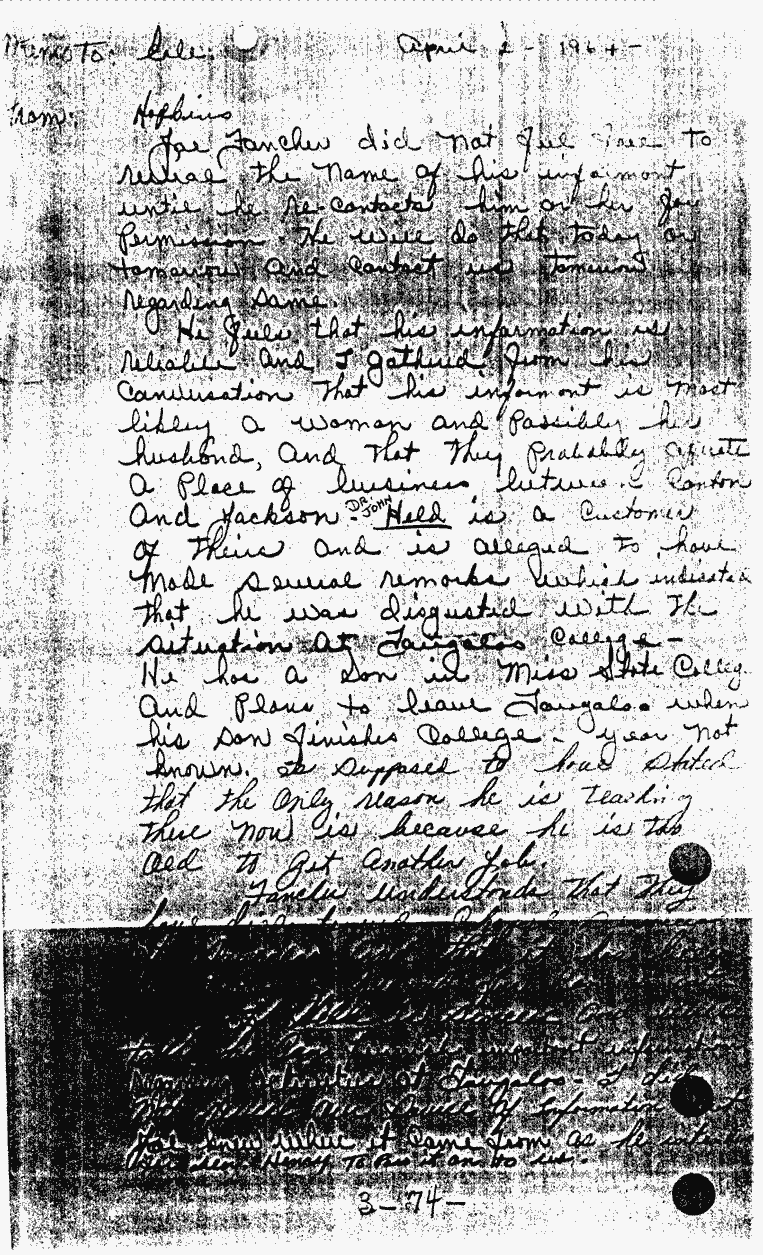 Memo To: File: April 2 - 1964 -
From: Hopkins
Joe Fancher did not feel free to
reveal the Name of his informont
until he re-contacts him or her for
Permission. He will do that today or
tomorrow And Contact us tomorrow
regarding Same.
He feels that his information is
reliable And I gathered from his
Conversation That his informont is most
likely a woman and Possibly her
husbond, And that They Probably operate
A Place of business between Canton
And Jackson - DR. JOHN Held is a Customer
of Theirs and is alleged to have
Made several remarks which indicated
that he was disgusted with The
situation At Tougaloo College -
He has a Son in Miss State College
And Plans to leave Tougaloo when
his Son finishes College - year Not
known. Is Supposed to have Stated
that the Only reason he is Teaching
there Now is because he is too
Old to get Another job.
Fancher understonds that They
have
that it has been
Held is and
told important information
Activities at Tougaloo - I did
Not Our Source of information
Joe knew where it Came from as he
Henry To Pass it on to us.
3-74-